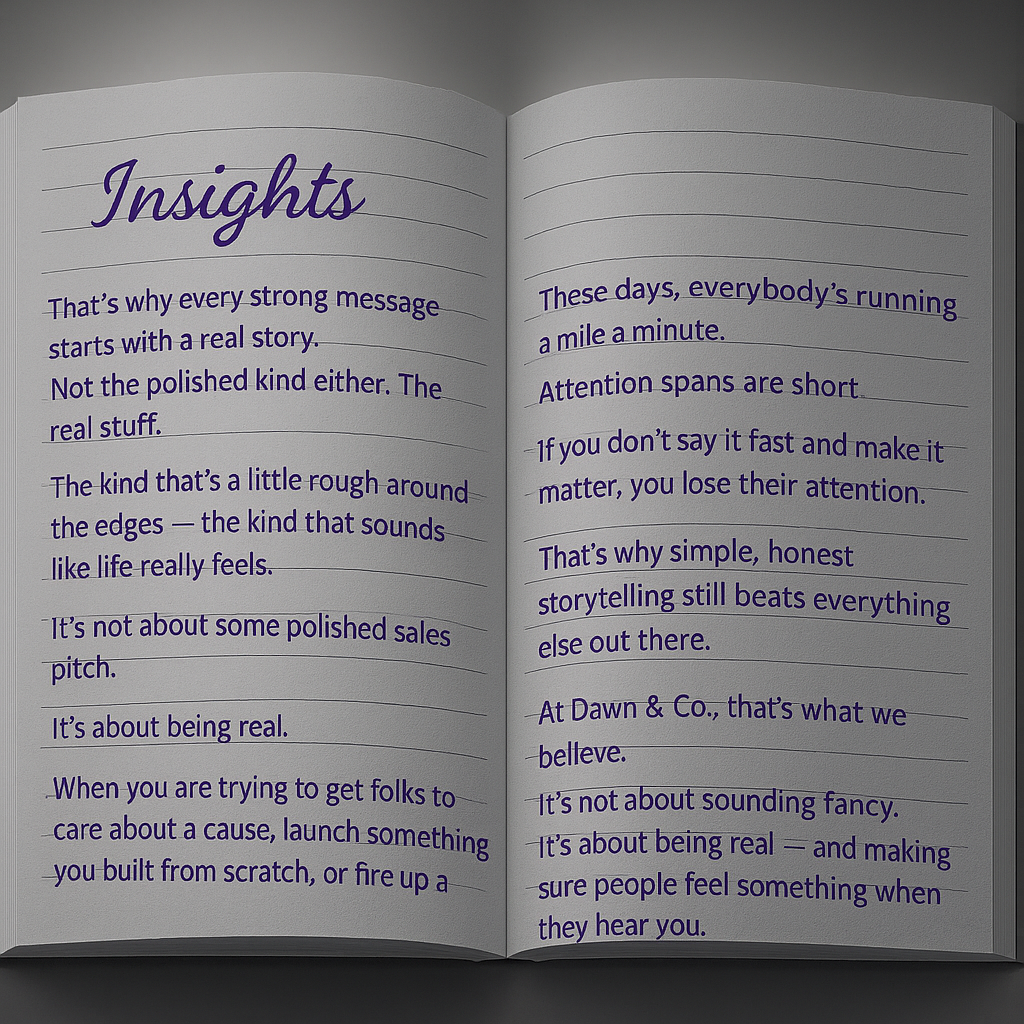 Insights
That's why every strong message
starts with a real story.
Not the polished kind either. The
real stuff.
The kind that's a little rough around
the edges — the kind that sounds
like life really feels.
It's not about some polished sales
pitch.
It's about being real.
When you are trying to get folks to
care about a cause, launch something
you built from scratch, or fire up a
These days, everybody's running
a mile a minute.
Attention spans are short.
If you don't say it fast and make it
matter, you lose their attention.
That's why simple, honest
storytelling still beats everything
else out there.
At Dawn & Co., that's what we
belleve.
It's not about sounding fancy.
It's about being real — and making
sure people feel something when
they hear you.